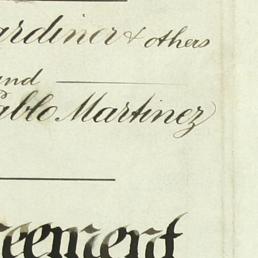 ardiner & others
and
ablo Martinez
reement